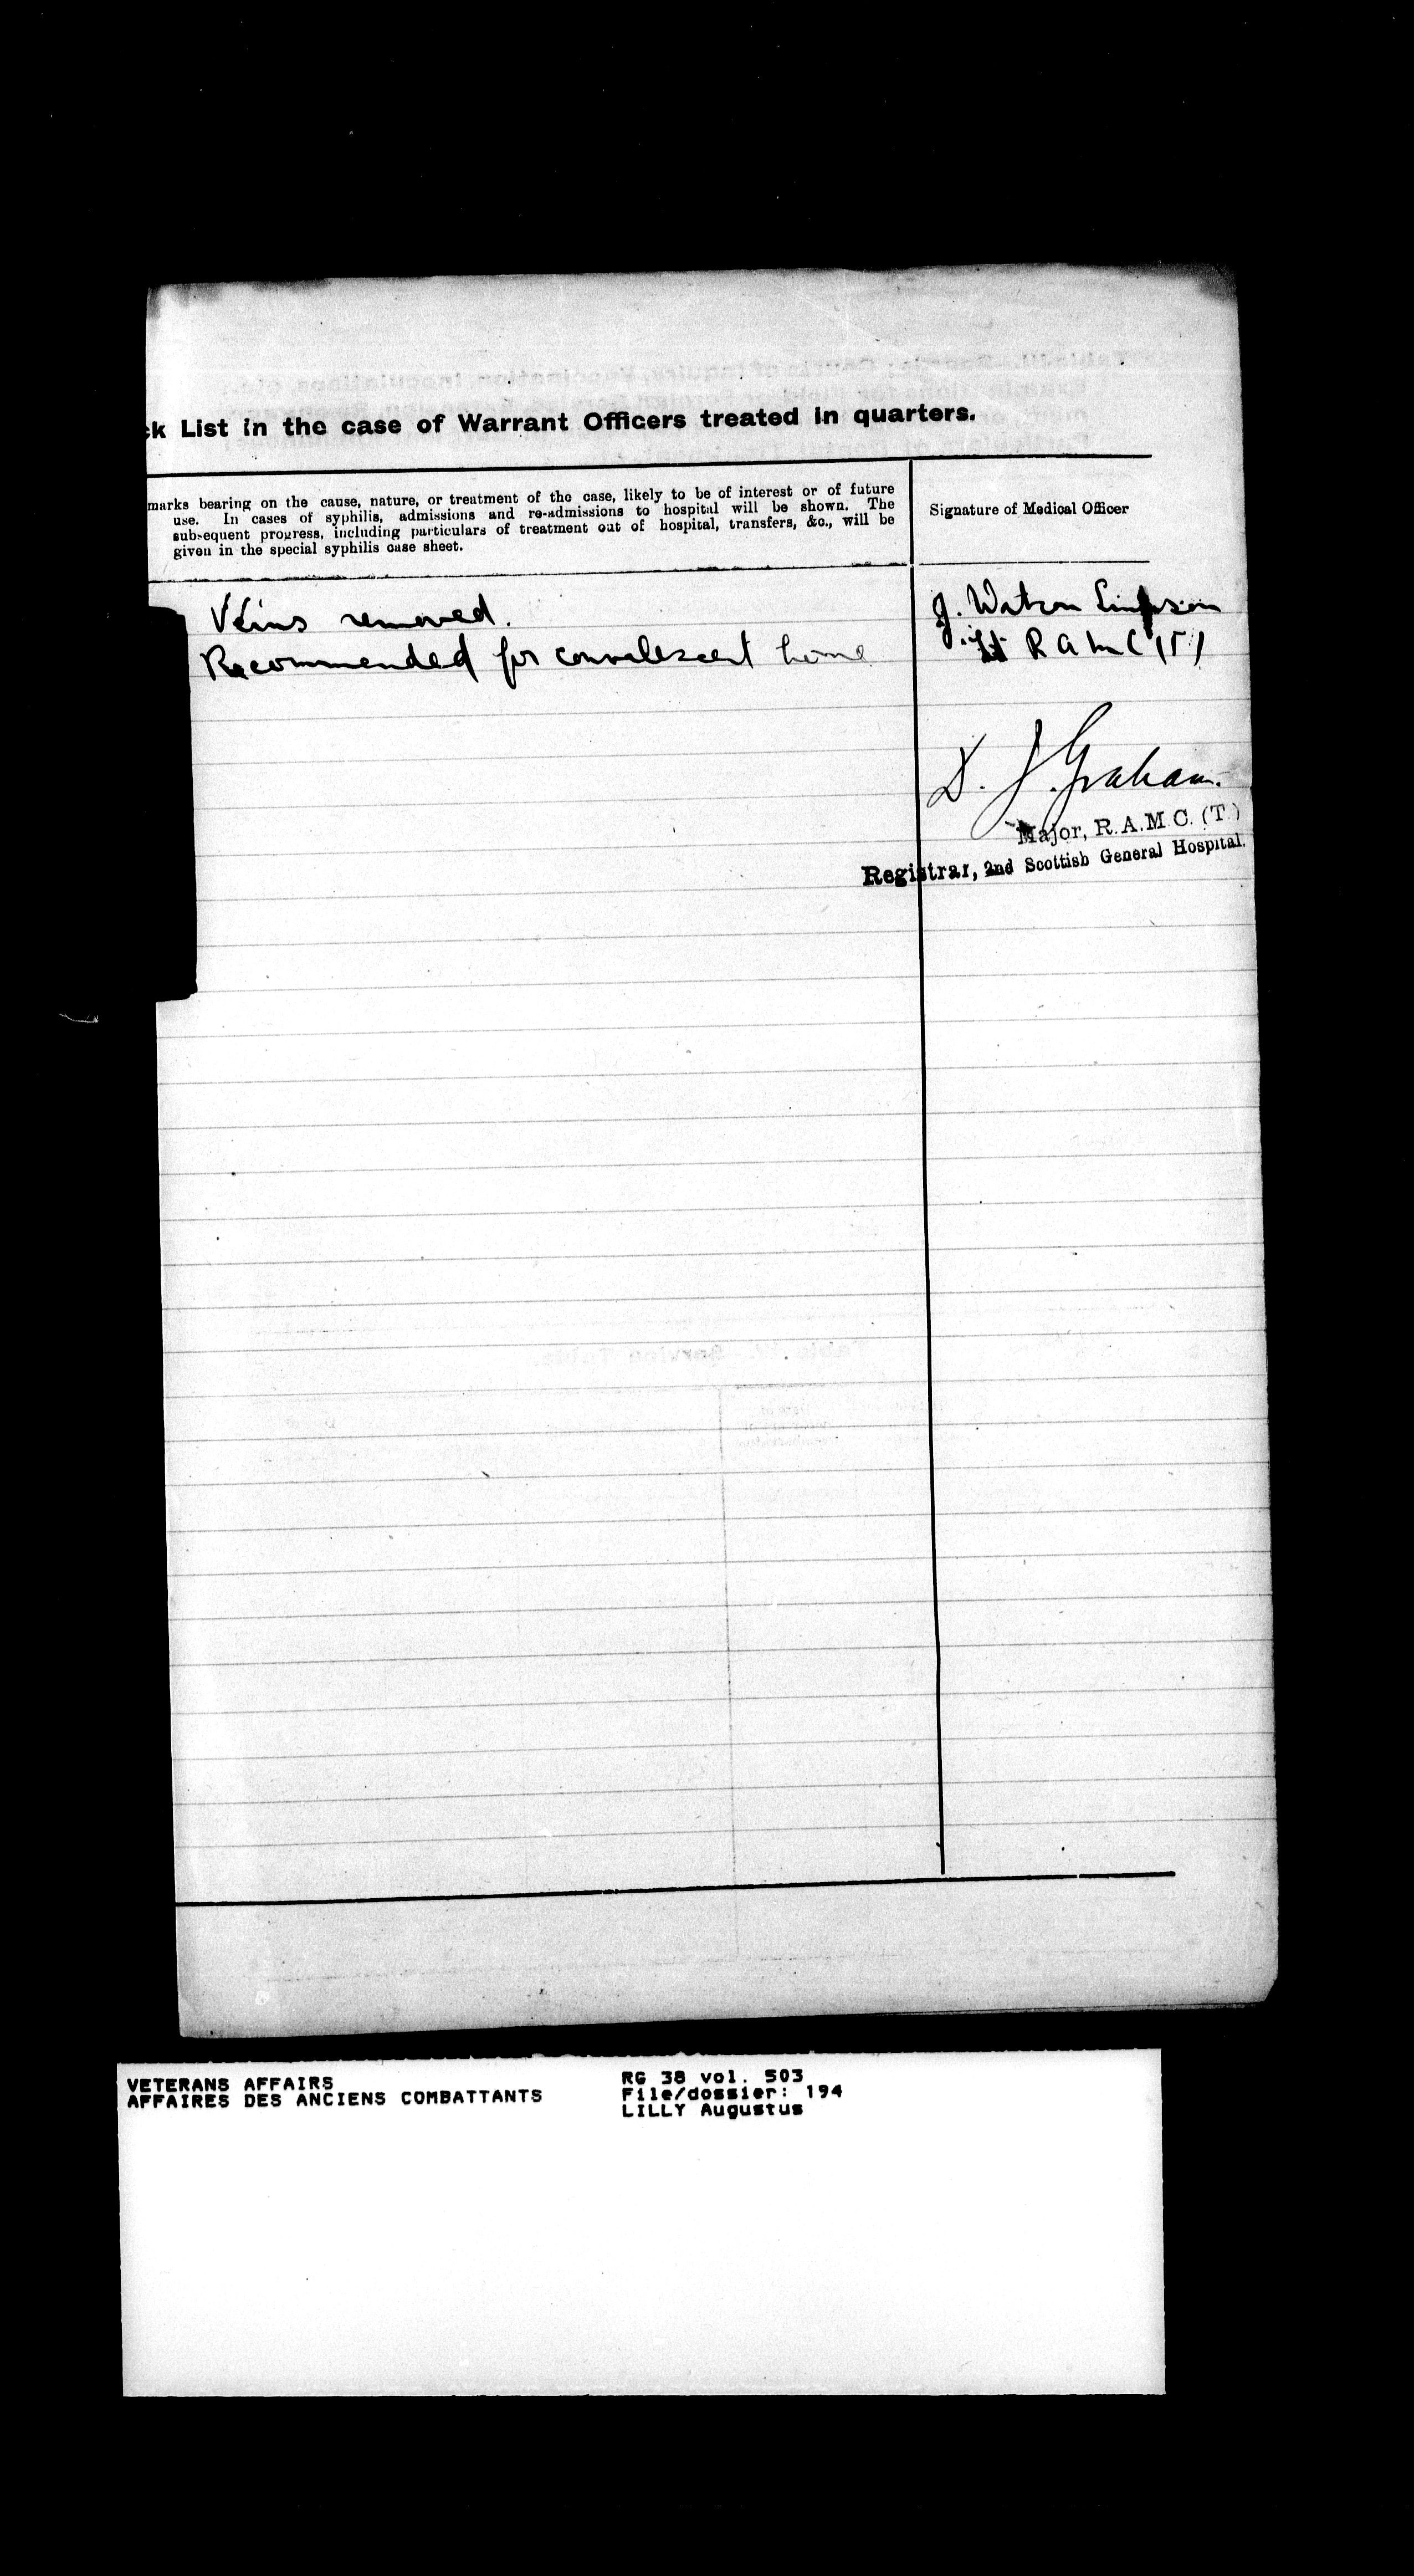 ck List in the case of Warrant Officers treated in quarters.
marks bearing on the cause, nature, or treatment of the case, likely to be of interest or of future
use. In cases of syphilis, admissions and re-admissions to hospital will be shown. The
subsequent progress, including particulars of treatment out of hospital, transfers, &c., will be
given in the special syphilis case sheet.
Signature of Medical Officer
Veins removed.
Recommended for convalescent home
J. Watson Simpson
Lt R A M C (T)
D. J. Graham.
Major, R.A.M.C. (T.)
Registrar, 2nd Scottish General Hospital.
VETERANS AFFAIRS
AFFAIRES DES ANCIENS COMBATTANTS
RG 38 vol. 503
File/dossier: 194
LILLY Augustus